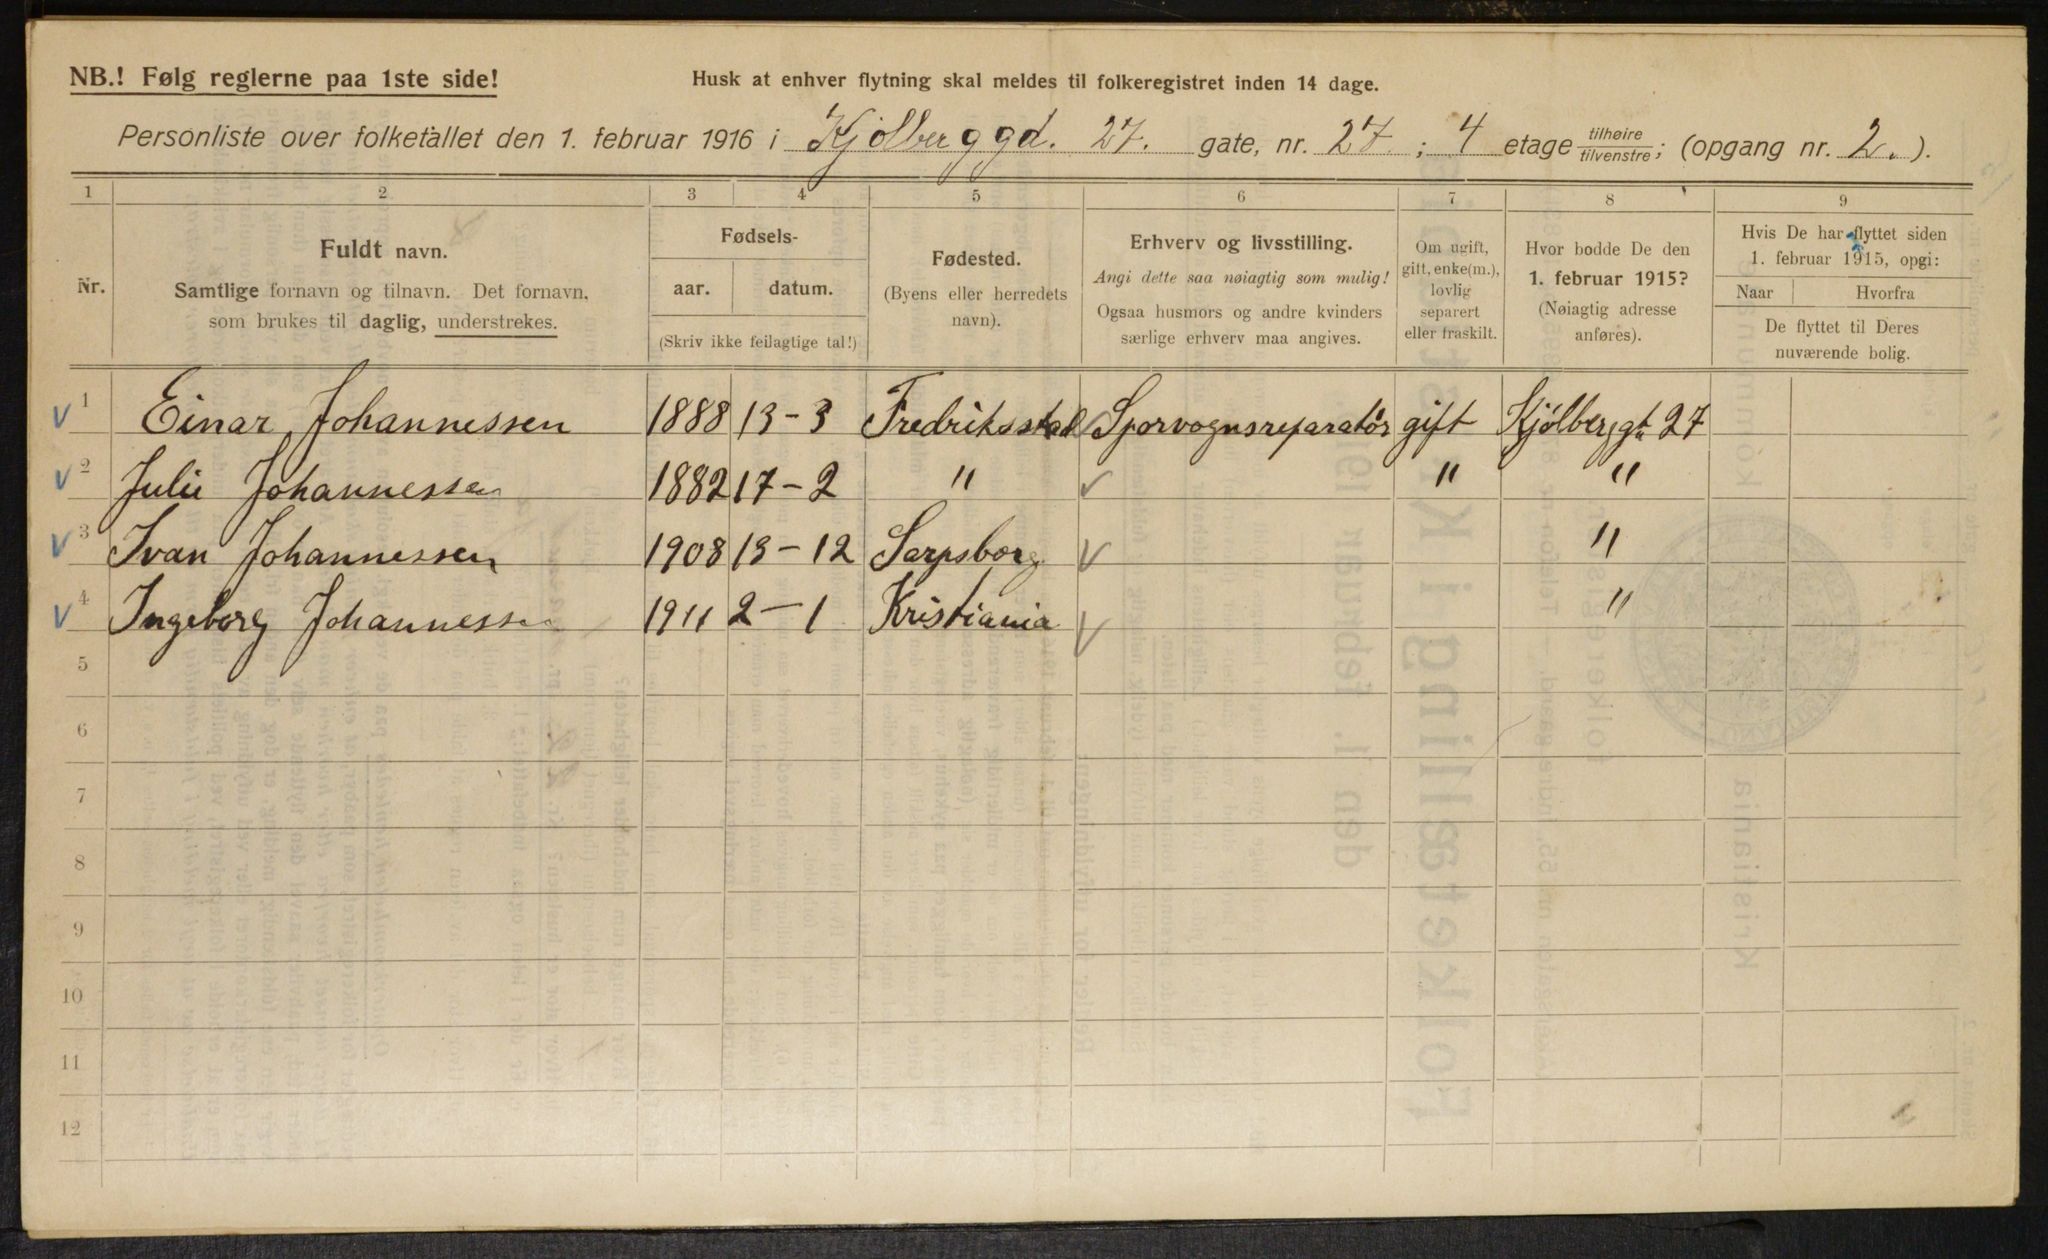 NB.! Følg reglerne paa 1ste side!
Husk at enhver flytning skal meldes til folkeregistret inden 14 dage.
Personliste over folketallet den 1. februar 1916 i Kjølberggd. 27. gate, nr. 27. ; 4 etage tilhøire/tilvenstre; (opgang nr. 2.).
1 2 3 4 5 6 7 8 9
Nr.
Fuldt navn.
Samtlige fornavn og tilnavn. Det fornavn,
som brukes til daglig, understrekes.
Fødsels-
aar. datum.
(Skriv ikke feilagtige tal!)
Fødested.
(Byens eller herredets
navn).
Erhverv og livsstilling.
Angi dette saa nøiagtig som mulig!
Ogsaa husmors og andre kvinders
særlige erhverv maa angives.
Om ugift,
gift, enke(m.),
lovlig
separert
eller fraskilt.
Hvor bodde De den
1. februar 1915?
(Nøiagtig adresse
anføres).
Hvis De har flyttet siden
1. februar 1915, opgi:
Naar Hvorfra
De flyttet til Deres
nuværende bolig.
1 Einar Johannessen 1888 13-3 Fredriksstad Sporvognsreparatør gift Kjølberggt. 27
2 Julie Johannessen 1882 17-2 " " "
3 Ivan Johannessen 1908 13-12 Sarpsborg "
4 Ingeborg Johannessen 1911 2-1 Kristiania "
5
6
7
8
9
10
11
12